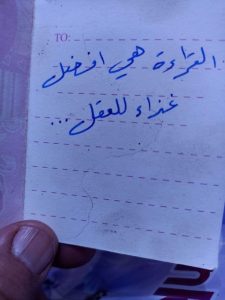 TO:
القراءة هي افضل
غذاء للعقل...